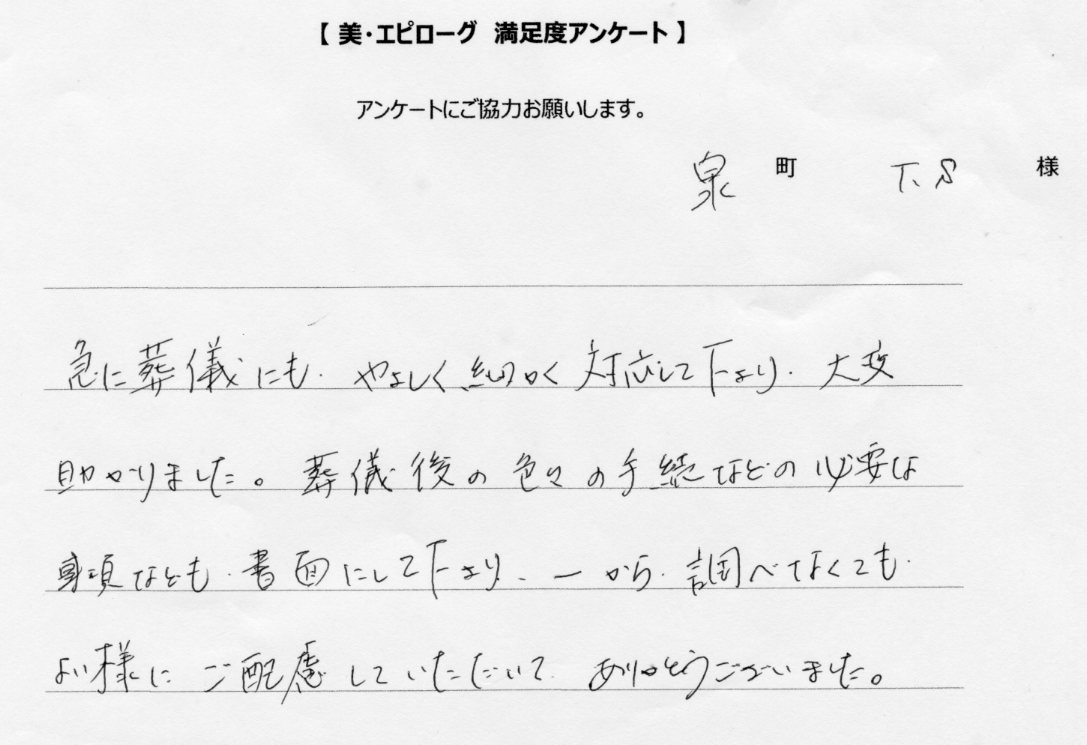 【 美・エピローグ 満足度アンケート 】
アンケートにご協力お願いします。
泉 町 T.S 様
急に葬儀にも、やさしく細かく対応して下さり、大変
助かりました。葬儀後の色々の手続などの必要な
事項なども、書面にして下さり、一から、調べなくても、
よい様に ご配慮していただいて、ありがとうございました。